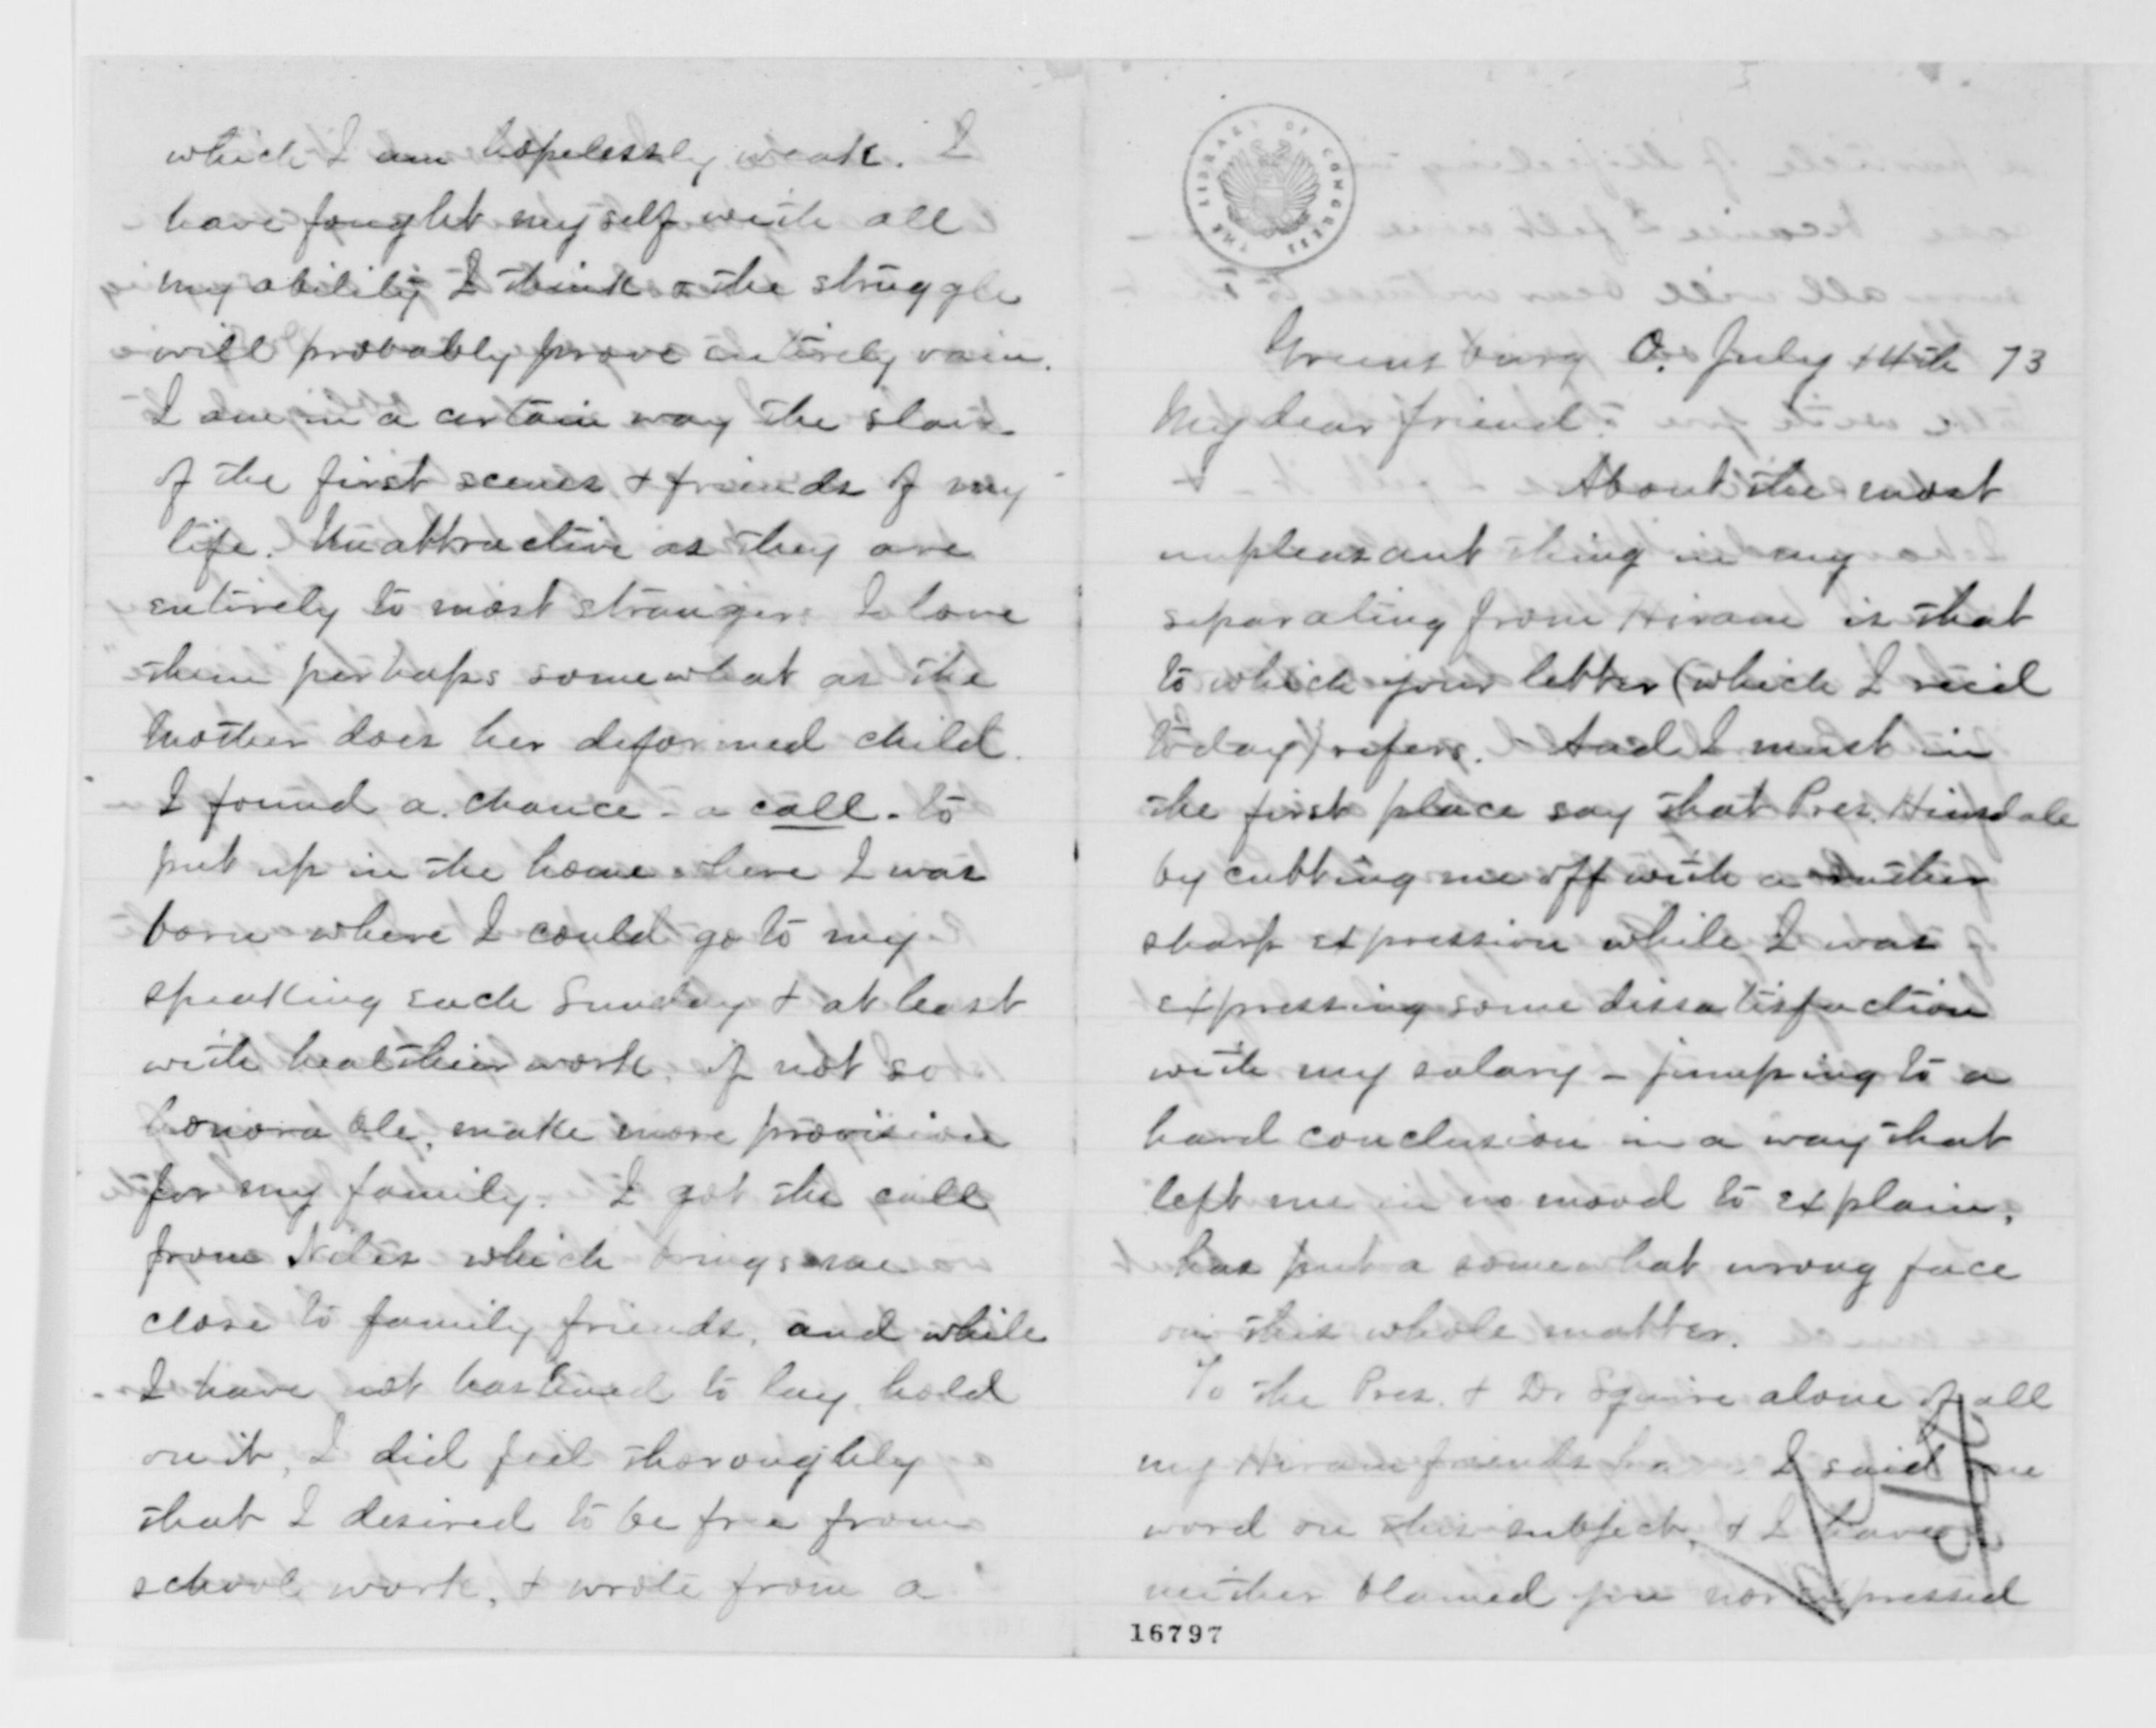 which I am hopelessly weak. I
have fought myself with all
my ability I think & the struggle
will probably prove entirely vain.
I am in a certain way the slave
of the first scenes & friends of my
life. Unattractive as they are
entirely to most strangers I love
them perhaps somewhat as the
mother does her deformed child.
I found a chance - a call - to
put up in the home where I was
born where I could go to my
speaking each Sunday & at least
with healthier work, if not so
honorable, make more provision
for my family. I got the call
from Niles which brings me
close to family friends, and while
I have not hastened to lay hold
on it, I did feel thoroughly
that I desired to be free from
school work, & wrote from a
THE LIBRARY OF CONGRESS
Greensburg O. July 14th 73
My dear friend:
About the most
unpleasant thing in my
separating from Hiram is that
to which your letter (which I rec'd
today) refers. And I must in
the first place say that Pres. Hinsdale
by cutting me off with a rather
sharp expression while I was
expressing some dissatisfaction
with my salary - jumping to a
hard conclusion in a way that
left me in no mood to explain,
has put a somewhat wrong face
on this whole matter.
To the Pres. & Dr Squire alone of all
my Hiram friends have I said one
word on this subject, & I have
neither blamed you nor expressed
16797